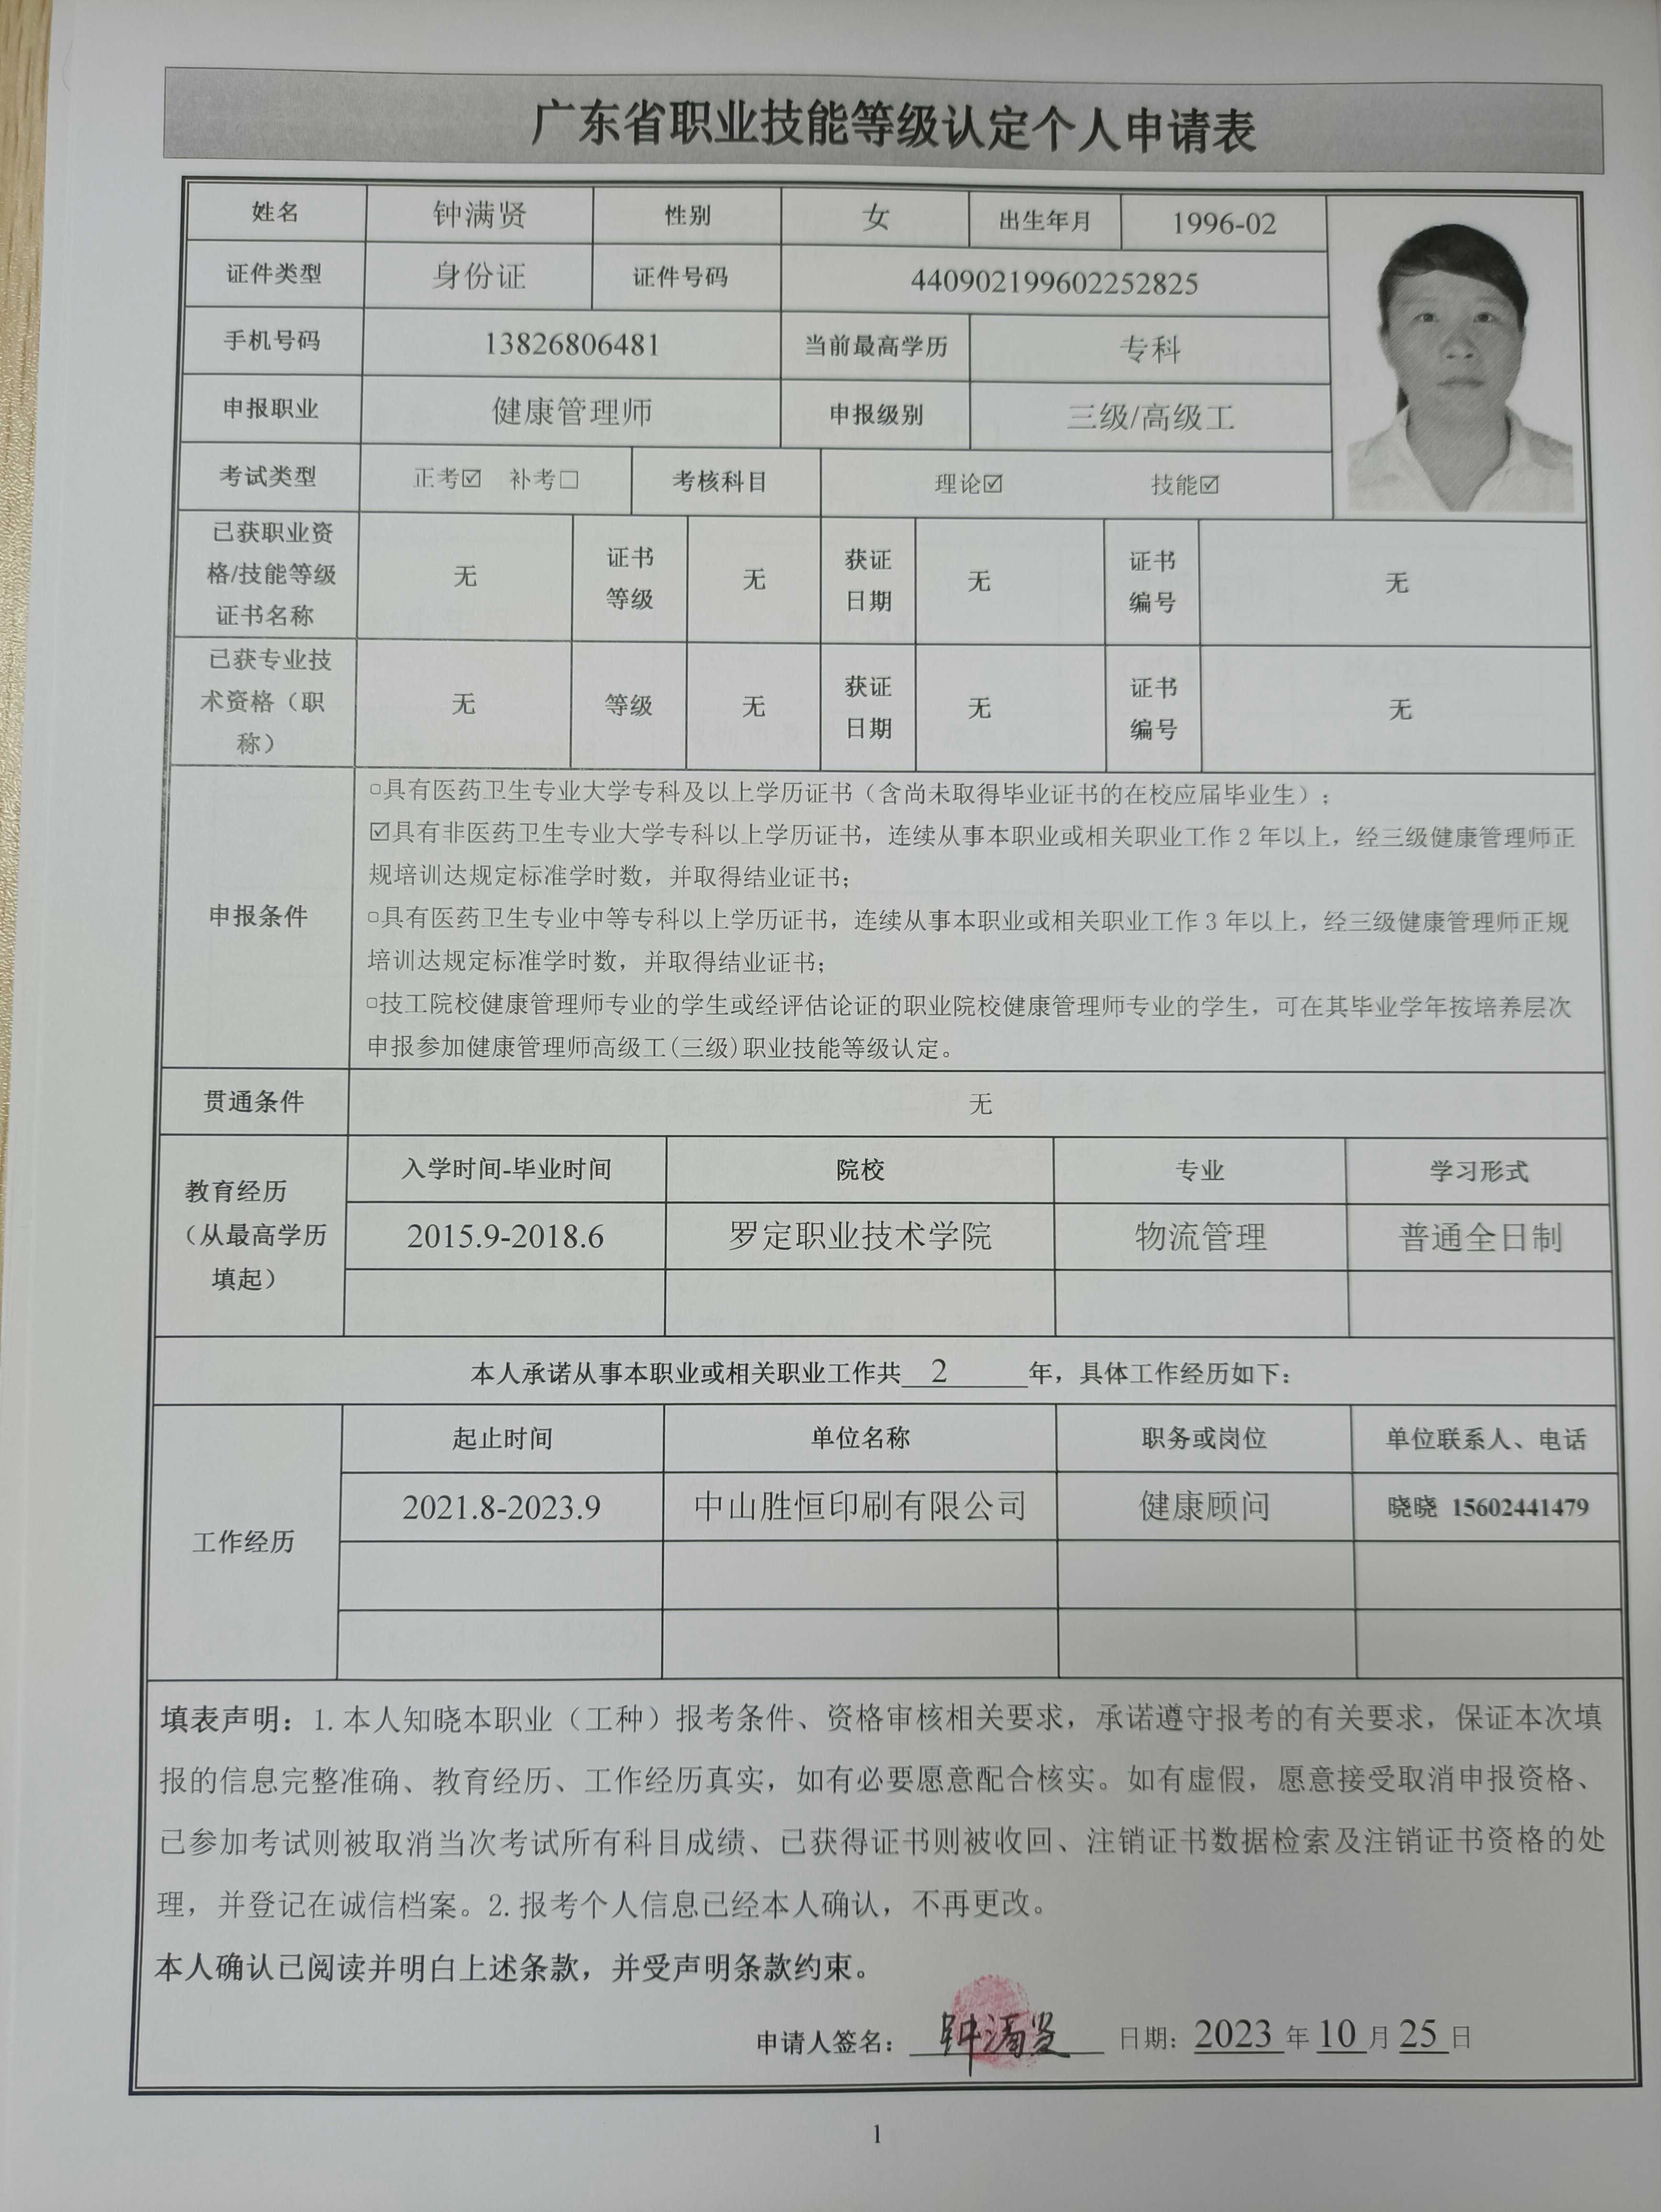 广东省职业技能等级认定个人申请表
姓名 钟满贤 性别 女 出生年月 1996-02
证件类型 身份证 证件号码 440902199602252825
手机号码 13826806481 当前最高学历 专科
申报职业 健康管理师 申报级别 三级/高级工
考试类型 正考☑ 补考□ 考核科目 理论☑ 技能☑
已获职业资
格/技能等级
证书名称
无
证书
等级
无
获证
日期
无
证书
编号
无
已获专业技
术资格（职
称）
无
等级
无
获证
日期
无
证书
编号
无
申报条件
□具有医药卫生专业大学专科及以上学历证书（含尚未取得毕业证书的在校应届毕业生）；
☑具有非医药卫生专业大学专科以上学历证书，连续从事本职业或相关职业工作 2 年以上，经三级健康管理师正
规培训达规定标准学时数，并取得结业证书；
□具有医药卫生专业中等专科以上学历证书，连续从事本职业或相关职业工作 3 年以上，经三级健康管理师正规
培训达规定标准学时数，并取得结业证书；
□技工院校健康管理师专业的学生或经评估论证的职业院校健康管理师专业的学生，可在其毕业学年按培养层次
申报参加健康管理师高级工(三级)职业技能等级认定。
贯通条件 无
教育经历
（从最高学历
填起）
入学时间-毕业时间 院校 专业 学习形式
2015.9-2018.6 罗定职业技术学院 物流管理 普通全日制
本人承诺从事本职业或相关职业工作共 2 年，具体工作经历如下：
工作经历
起止时间 单位名称 职务或岗位 单位联系人、电话
2021.8-2023.9 中山胜恒印刷有限公司 健康顾问 晓晓 15602441479
填表声明：1.本人知晓本职业（工种）报考条件、资格审核相关要求，承诺遵守报考的有关要求，保证本次填
报的信息完整准确、教育经历、工作经历真实，如有必要愿意配合核实。如有虚假，愿意接受取消申报资格、
已参加考试则被取消当次考试所有科目成绩、已获得证书则被收回、注销证书数据检索及注销证书资格的处
理，并登记在诚信档案。2.报考个人信息已经本人确认，不再更改。
本人确认已阅读并明白上述条款，并受声明条款约束。
申请人签名：钟满贤 日期：2023 年 10 月 25 日
1